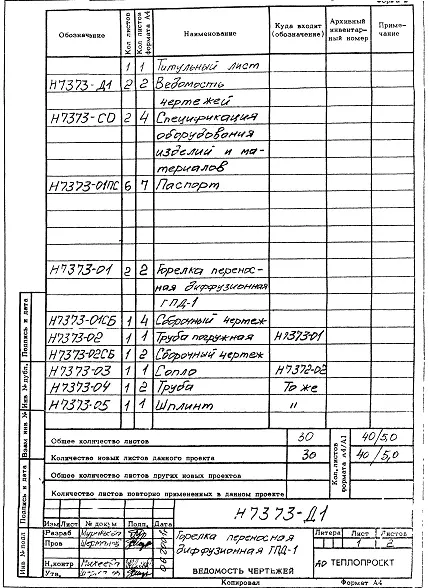 Обозначение Кол листов Кол. листов формата А4 Наименование Куда входит (обозначение) Архивный инвентарный номер Примечание
1 1 Титульный лист
Н7373-Д1 2 2 Ведомость
чертежей
Н7373-СО 2 4 Спецификация
оборудования
изделий и ма-
териалов
Н7373-01ПС 6 7 Паспорт
Н7373-01 2 2 Горелка перенос-
ная диффузионная
ГПД-1
Н7373-01СБ 1 4 Сборочный чертеж
Н7373-02 1 1 Труба погружная Н7373-01
Н7373-02СБ 1 2 Сборочный чертеж
Н7373-03 1 1 Сопло Н7372-02
Н7373-04 1 2 Труба То же
Н7373-05 1 1 Шплинт "
Общее количество листов 30 Кол. листов формата А4/А1 40/5,0
Количество новых листов данного проекта 30 40/5,0
Общее количество листов других новых проектов
Количество листов повторно примененных в данном проекте
Подпись и дата
Инв № дубл.
Взам инв №
Подпись и дата
Инв № подл
Н7373-Д1
Изм Лист № докум Подп. Дата
Разраб
Пров
Н.контр
Утв.
Горелка переносная
диффузионная ГПД-1
ВЕДОМОСТЬ ЧЕРТЕЖЕЙ
Литера Лист Листов
1 2
АО ТЕПЛОПРОЕКТ
Копировал Формат А4